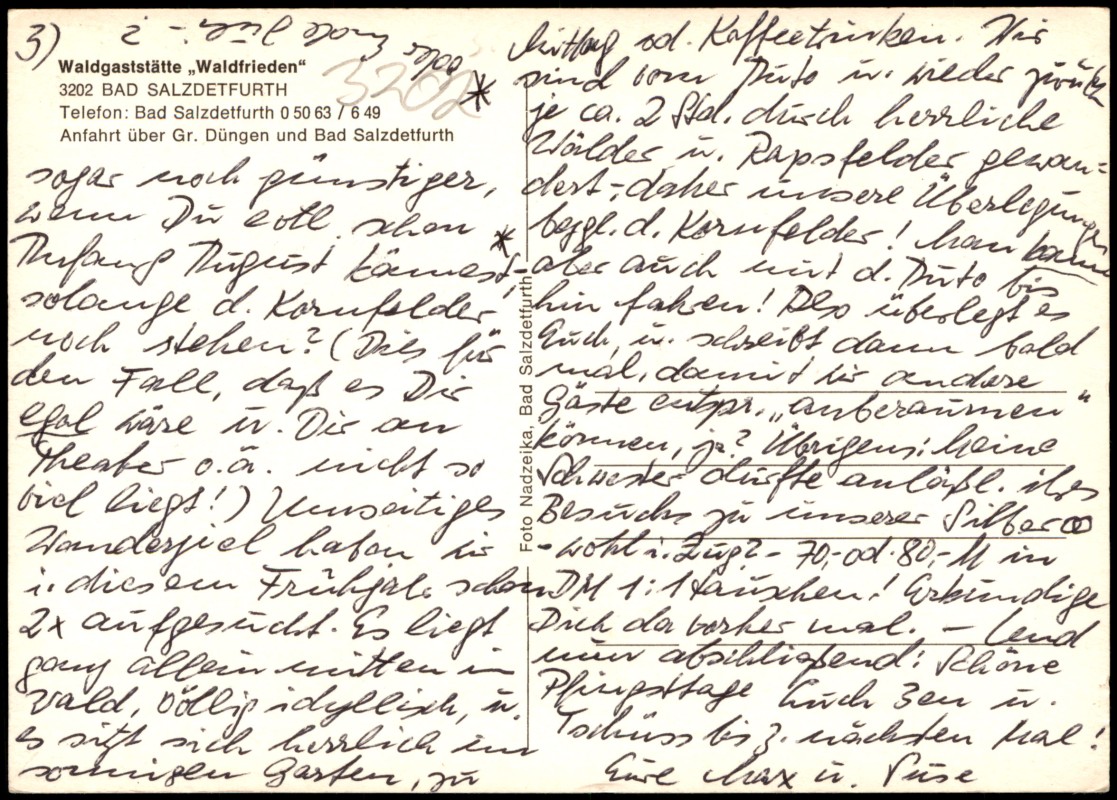 3)
* oder noch Juli - ?
Waldgaststätte „Waldfrieden“
3202 BAD SALZDETFURTH
Telefon: Bad Salzdetfurth 0 50 63 / 6 49
Anfahrt über Gr. Düngen und Bad Salzdetfurth
3202
sogar noch günstiger,
wenn Du evtl. schon *
Anfang August kämest,-
solange d. Kornfelder
noch stehen? (Dies für
den Fall, daß es Dir
egal wäre u. Dir an
Theater o.ä. nicht so
viel liegt!) Umseitiges
Wanderziel haben wir
i. diesem Frühjahr schon
2x aufgesucht. Es liegt
ganz allein mitten im
Wald, völlig idyllisch, u.
es sitzt sich herrlich im
sonnigen Garten, zu
Foto Nadzeika, Bad Salzdetfurth
Mittag od. Kaffeetrinken. Wir
sind vom Auto u. wieder zurück
je ca. 2 Std. durch herrliche
Wälder u. Rapsfelder gewan-
dert,- daher unsere Überlegungen
bezgl. d. Kornfelder! Man kann
aber auch mit d. Auto bis
hin fahren! Also überlegt es
Euch, u. schreibt dann bald
mal, damit wir andere
Gäste entspr. „anberaumen“
können, ja? Übrigens: Meine
Schwester durfte anläßl. ihres
Besuchs zu unserer Silber ∞
- wohl i. Zug? - 70,- od. 80,- M in
DM 1:1 tauschen! Erkundige
Dich da vorher mal. - Und
nun abschließend: Schöne
Pfingsttage Euch 3en u.
Tschüss bis z. nächsten Mal!
Eure Max u. Suse